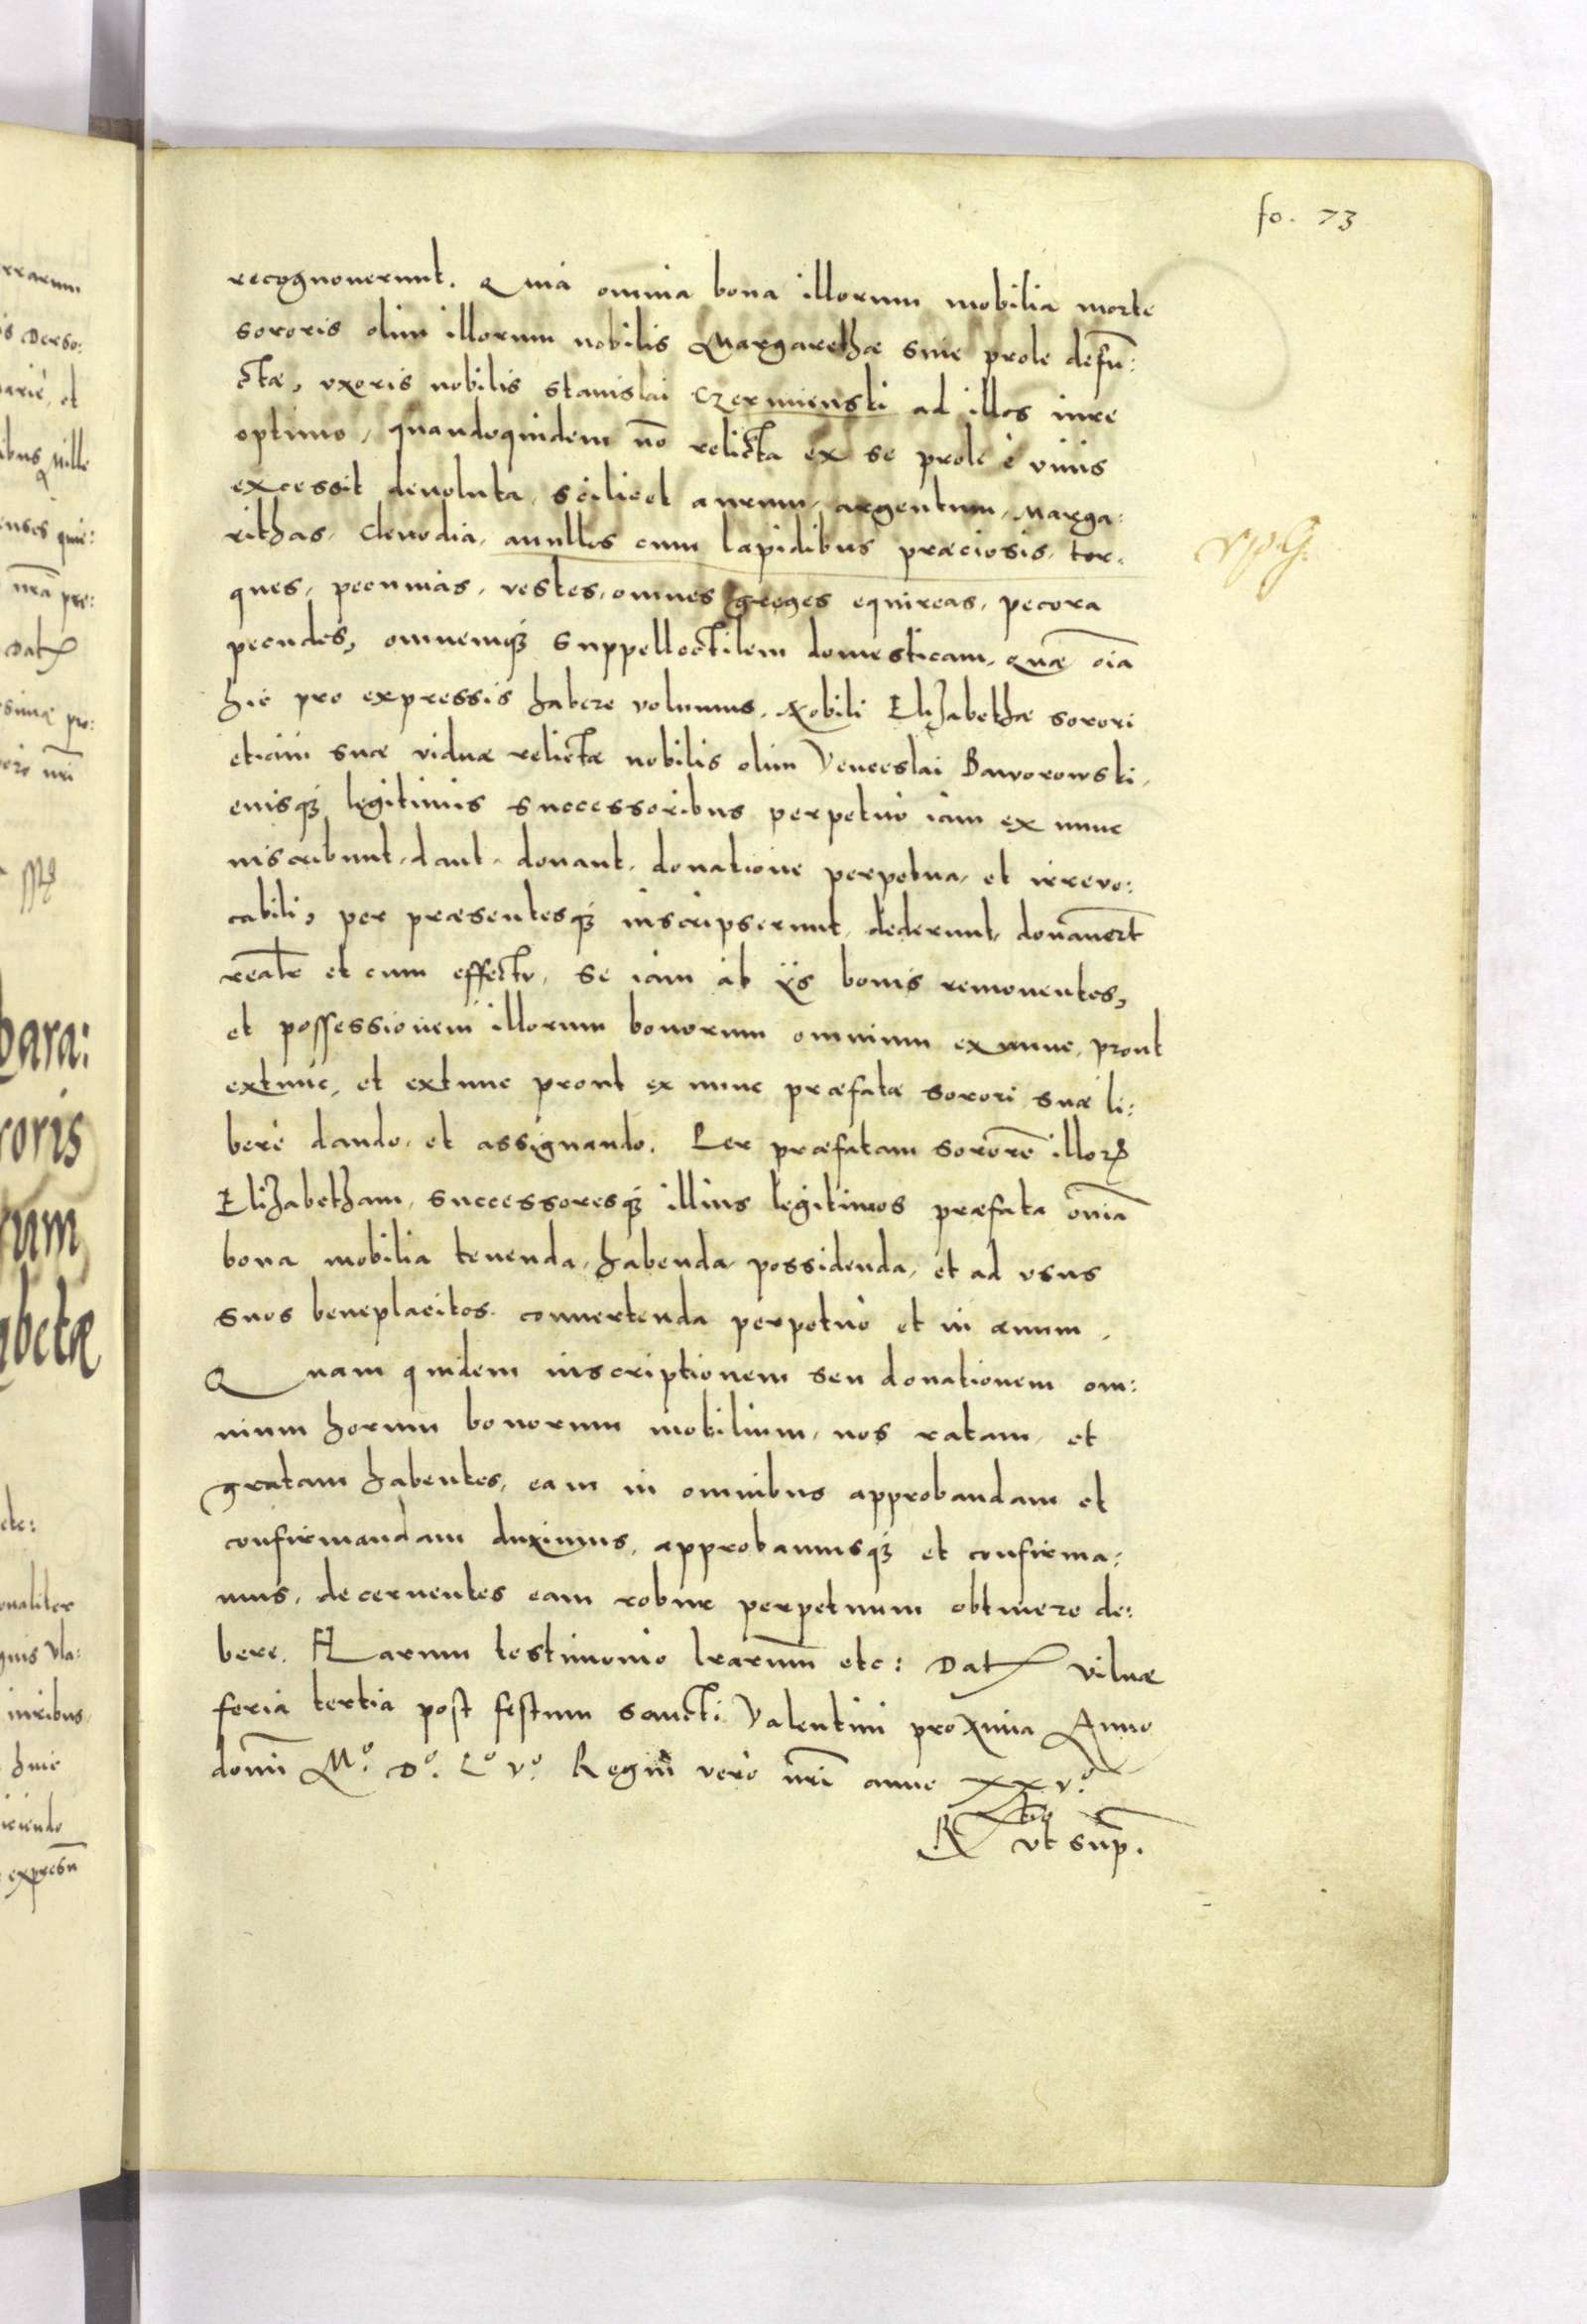 fo. 73
recognoverunt. Quia omnia bona illorum mobilia morte
sororis olim illorum nobilis Margarethæ sine prole defũ:
ctæ, vxoris nobilis Stanislai Czerminski ad illos iure
optimo, quandoquidem nõ relicta ex se prole è viuis
excessit deuoluta, scilicet aurum, argentum, Marga:
rithas, Clenodia, anullos cum lapidibus præciosis, tor:
ques, pecunias, vestes, omnes greges equireas, pecora
pecudes, omnemq; suppellectilem domesticam, quæ oĩa
hic pro expressis habere volumus. Nobili Elizabethæ sorori
etiam suæ viduæ relictæ nobilis olim Venceslai Baworowski,
eiusq; legitimis successoribus perpetuò iam ex nunc
inscribunt, dant, donant, donatione perpetua, et irreuo:
cabili, per præsentesq; inscripserunt, dederunt, donauerũt
realr̃ et cum effectu, se iam ab ÿs bonis remouentes,
et possessionem illorum bonorum omnium ex nunc, prout
extunc, et extunc prout ex nunc præfatæ sorori suæ li:
berè dando, et assignando. Per præfatam sororẽ illorꝝ
Elizabetham, successoresq; illius legitimos præfata om̃ia
bona mobilia tenenda, habenda, possidenda, et ad vsus
suos beneplacitos conuertenda perpetuò et in æuum.
Quam quidem inscriptionem seu donationem om:
nium horum bonorum mobilium, nos ratam, et
gratam habentes, eam in omnibus approbandam et
confirmandam duximus, approbamusq; et confirma:
mus, decernentes eam robur perpetuum obtinere de:
bere. Harum testimonio lrarum̃ etc: Datꝭ Vilnæ
feria tertia post festum Sancti Valentini proxima Anno
domĩ Mº. Dº. Lº Vº. Regnĩ verò nrĩ anno XXVº.
Rᵗⁱᵒ vt sup̃.